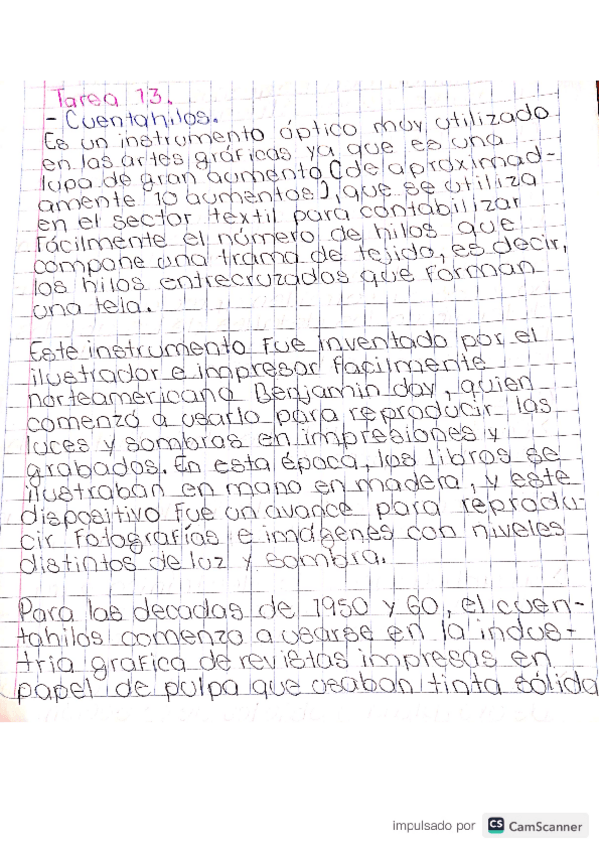 Tarea 13.
- Cuentahilos.
Es un instrumento óptico muy utilizado
en las artes gráficas ya que es una
lupa de gran aumento (de aproximad-
amente 10 aumentos), que se utiliza
en el sector textil para contabilizar
fácilmente el número de hilos que
compone una trama de tejido, es decir,
los hilos entrecruzados que forman
una tela.
Este instrumento fue inventado por el
ilustrador e impresor facilmente
norteamericano Benjamin day, quien
comenzó a usarlo para reproducir las
luces y sombras en impresiones y
grabados. En esta época, los libros se
ilustraban en mano en madera, y este
dispositivo fue un avance para reprodu-
cir fotografías e imágenes con niveles
distintos de luz y sombra.
Para las decadas de 1950 y 60, el cuen-
tahilos comenzo a usarse en la indus-
tria grafica de revistas impresas en
papel de pulpa que usaban tinta sólida
impulsado por CS CamScanner